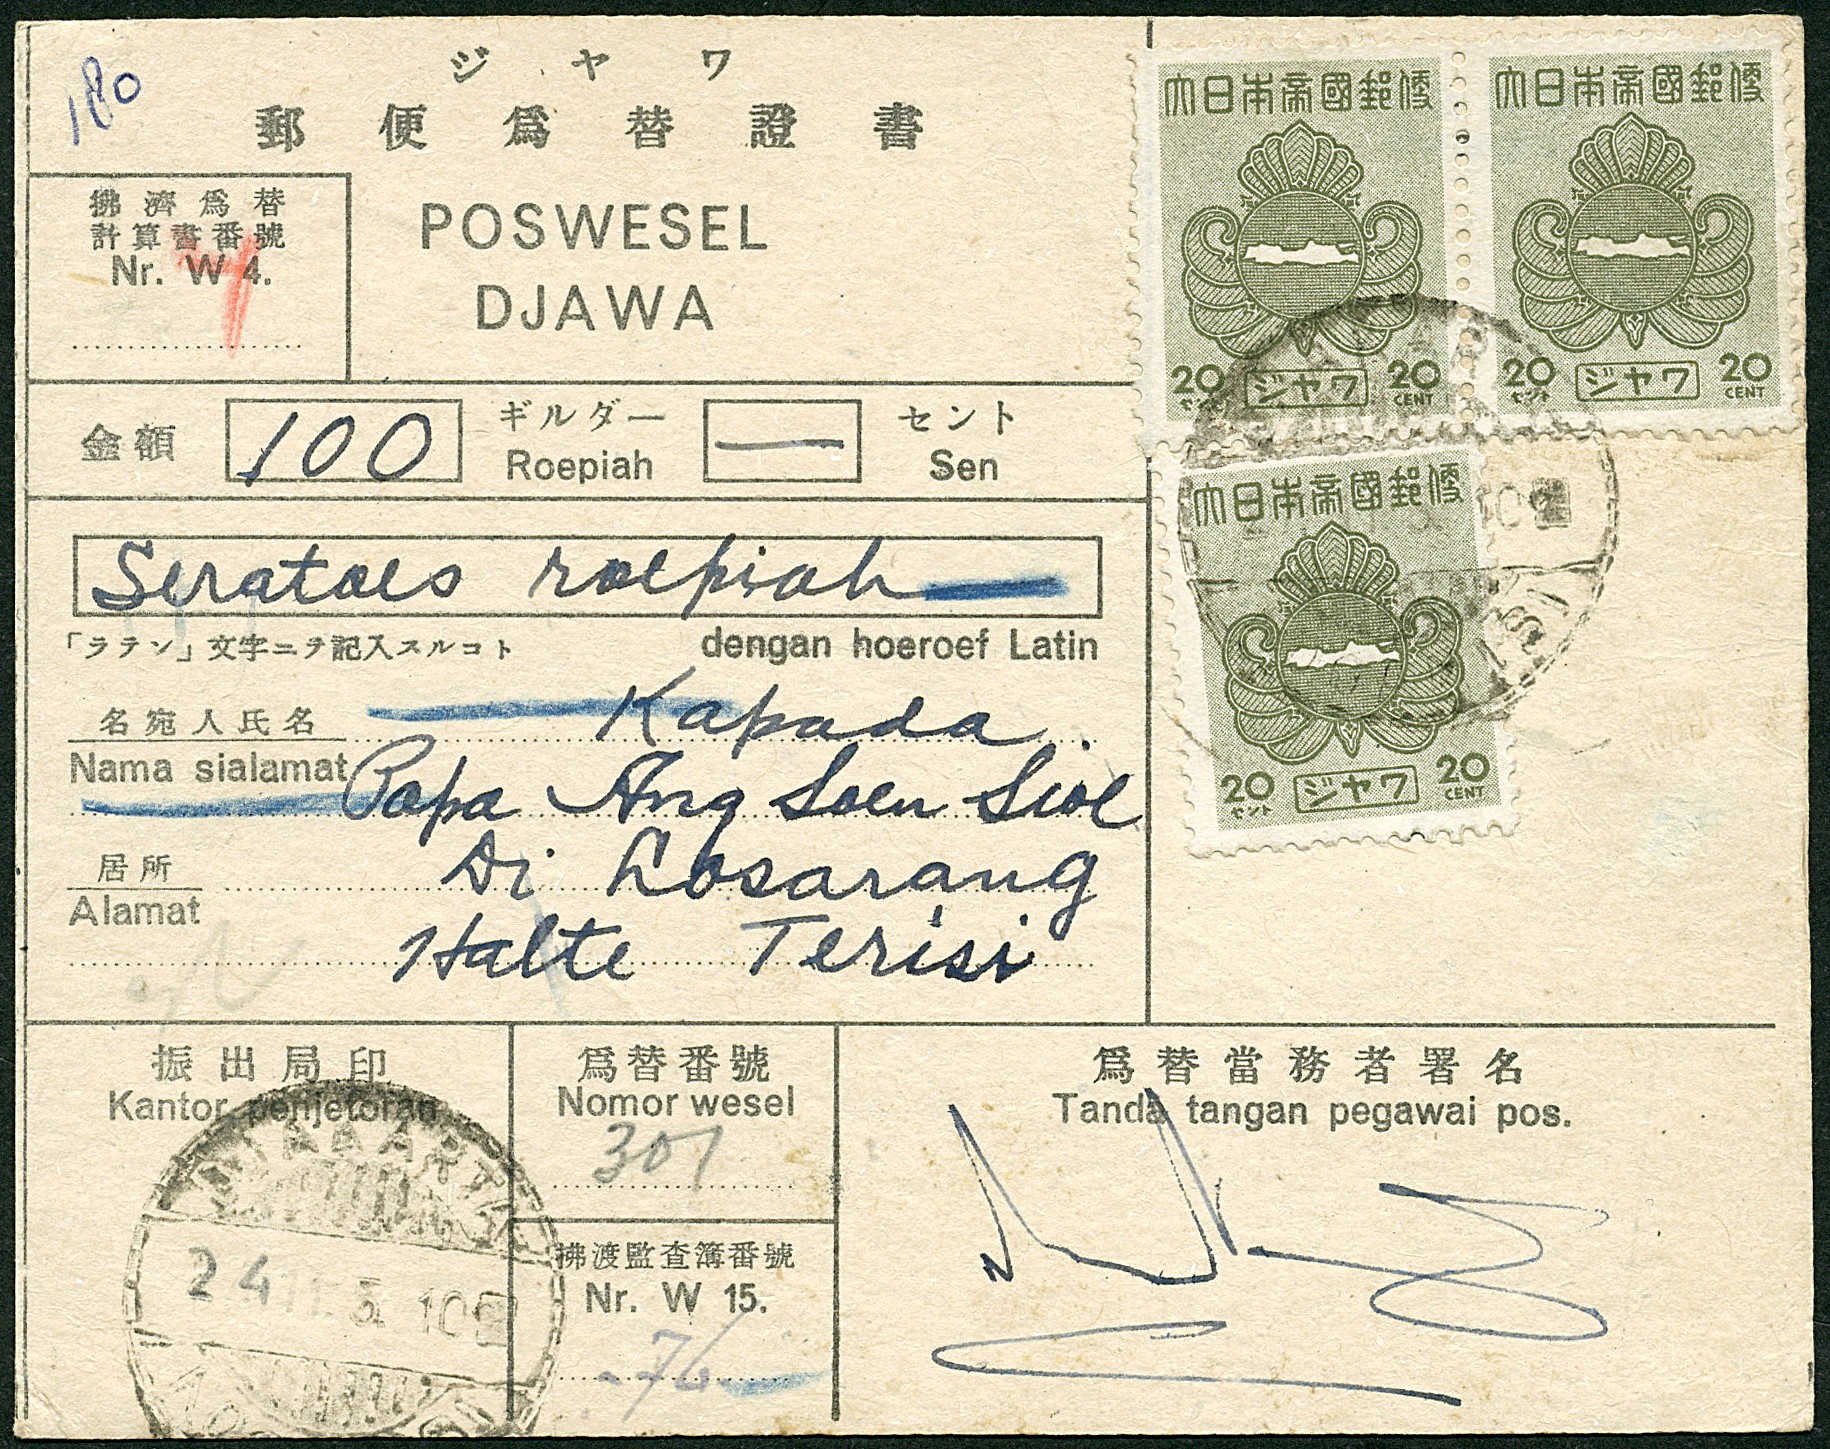 180
ジャワ
郵便為替證書
POSWESEL
DJAWA
拂濟為替
計算書番號
Nr. W 4.
4
大日本帝國郵便
20 セント ジャワ 20 CENT
大日本帝國郵便
20 セント ジャワ 20 CENT
大日本帝國郵便
20 セント ジャワ 20 CENT
金額 100 ギルダー Roepiah — セント Sen
Seratoes roepiah
「ラテン」文字ニテ記入スルコト dengan hoeroef Latin
名宛人氏名 Kapada
Nama sialamat Papa Ang Soen Sioe
居所 Di Losarang
Alamat
Halte Terisi
振出局印
Kantor penjetoran
DJAKARTA
24 11. 3 10
爲替番號
Nomor wesel
301
拂渡監査簿番號
Nr. W 15.
76
爲替當務者署名
Tanda tangan pegawai pos.